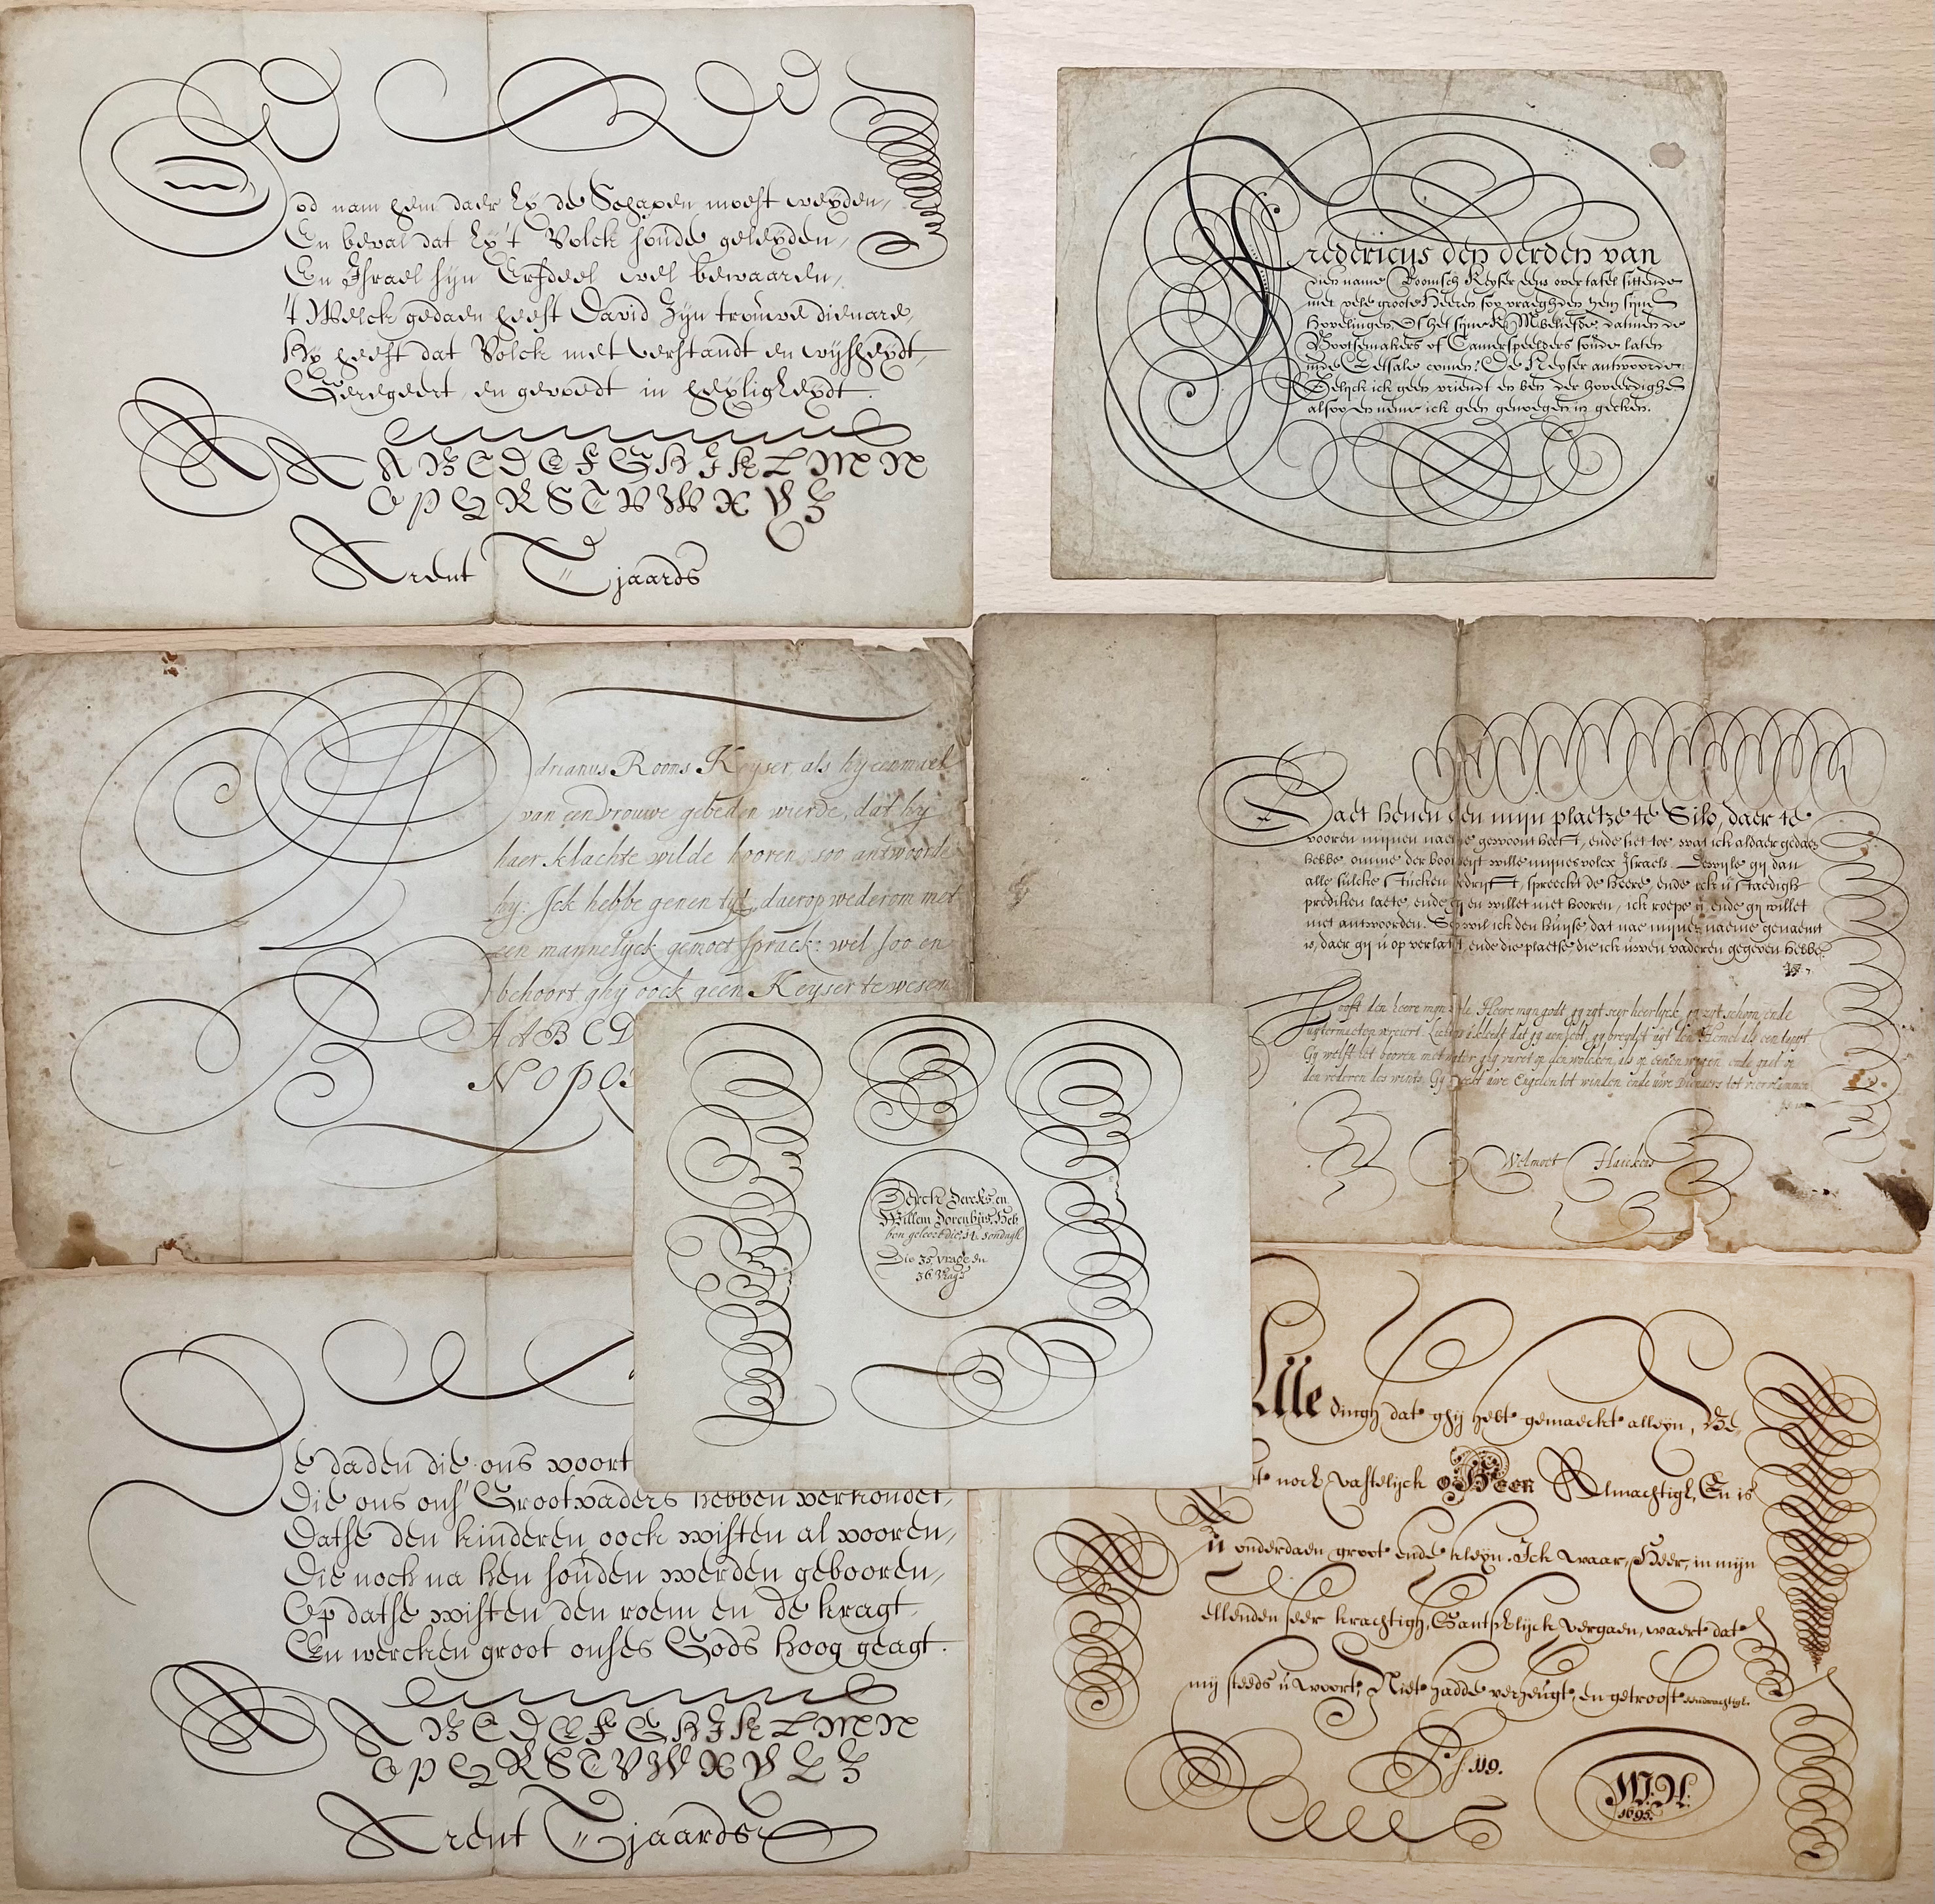 God nam hem daer hy de Schapen moest weyden,
En beval dat hy 't Volck soude geleyden,
En Israel syn Erfdeel wel bewaaren,
't Welck gedaen heeft David Zyn trouwe dienare,
Hy heeft dat Volck met verstandt en wysheydt,
Geregeert en gevoedt in heyligheydt.
A A B C D E F G H I K L M N
O P Q R S T V W X Y Z
Arent Tjaards
Fredericus den derden van
dien name Roomsch Keyser eens over tafel sittende
met vele groote Heeren soo vraeghden hem sijne
Hovelingen, Of het sijne K. M. beliefde, datmen de
Bootsemakers of Camerspeelders soude laten
inde Eetsale comen? De Keyser antwoorde:
Gelyck ick geen vriendt en ben der hoveerdighe
alsoo en neme ick geen genoegen in gecken.
Adrianus Rooms Keyser, als hy eenmael
van een Vrouwe gebeden wierde, dat hy
haer klachte wilde hooren, soo antwoorde
hy: Ick hebbe genen tyt, daerop wederom met
een mannelyck gemoet sprack: wel soo en
behoort ghy oock geen Keyser te wesen
A A B C D
N O P Q
Gaet henen den mijn plaetze te Silo, daer te
vooren mijnen naeme gewoont heeft, ende siet toe, wat ick aldaer gedaen
hebbe, omme der boosheyt wille mijnes volcx Israels. Dewijle gij dan
alle sulcke stucken bedrijft, spreeckt de Heere, ende ick u staedigh
prediken laete, ende gij en willet niet hooren, ick roepe u ende gij willet
niet antwoorden. Soo wil ick den huijse dat nae mijnes naeme genaemt
is, daer gij u op verlaet, ende die plaetse die ick uwen vaderen gegeven hebbe.
Looft den heere myn ziele. Heere myn godt, gy zyt seyr heerlyck, gy zyt schoon, ende
uytermaeten verciert. Licht is u kleedt dat gy aenhebt, gy breydet uyt den Hemel als een tapyt
Gy welft het booven met water, ghy vaeret op den wolcken, als op eenen wagen, ende gaet op
den vederen des wints. Gy maeckt uwe Engelen tot winden, ende uwe Dienaers tot viervlammen
Welmoet Haickens
Derck Dercks en
Willem Dorenbus Heb
ben geleert die 14 sondagh
Die 35 vrage en
36 Vrage
De daden die ons voort
Die ons ons' Grootvaders hebben verkondet,
Datse den kinderen oock wisten al vooren,
Die noch na hen souden werden gebooren,
Op datse wisten den roem en de kragt
En wercken groot onses Gods hoog geagt.
A A B C D E F G H I K L M N
O P Q R S T V W X Y Z Z
Arent Tjaards
Alle dingh dat ghij hebt gemaeckt alleyn, Be-
noch vastelijck o Heer Almachtigh, En is
U onderdaen groot ende kleyn. Ick waar, Heer, in mijn
ellenden seer krachtigh, Gantschlijck vergaen, waert dat
mij steeds u woort, Niet hadde verheugt, en getroost eendrachtigh.
Ps 119.
W.H.
1695